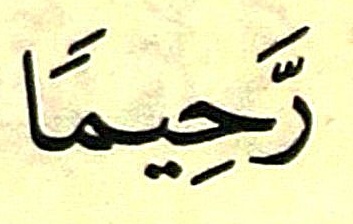 رَّحِيمًا